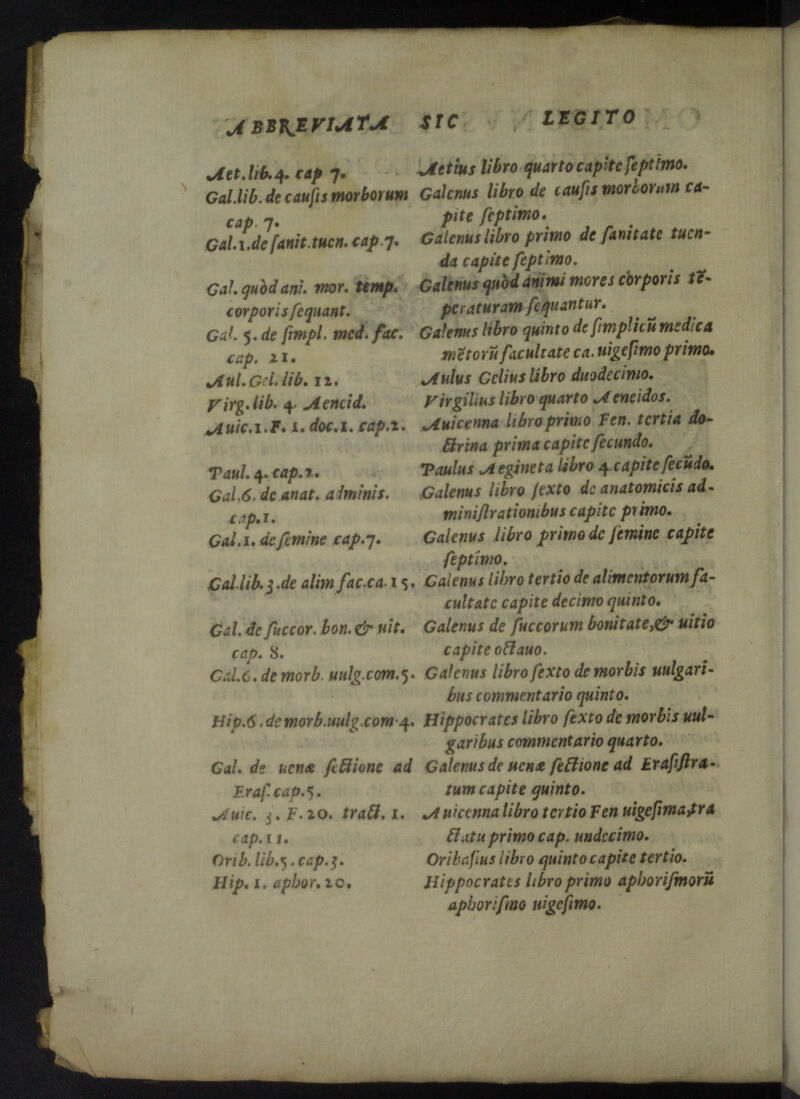 ABBREVIATA SIC LEGITO
Aet.lib.4. cap 7. Aetius libro quarto capite ſeptimo.
Gal.lib. de cauſis morborum Galenus libro de cauſis morborum ca-
cap. 7. pite ſeptimo.
Gal.1.de ſanit.tuen. cap.7. Galenus libro primo de ſanitate tuen-
da capite ſeptimo.
Gal. quòd ani. mor. temp. Galenus quòd animi mores corporis tē-
corporis ſequant. peraturam ſequantur.
Gal. 5. de ſimpl. med. fac. Galenus libro quinto de ſimpliciū medica
cap. 21. mētorū facultate ca. uigeſimo primo.
Aul. Gel. lib. 12. Aulus Gelius libro duodecimo.
Virg. lib. 4. Aeneid. Virgilius libro quarto Aeneidos.
Auic.1.F. 1. doc.1. cap.2. Auicenna libro primo Fen. tertia do-
ctrina prima capite ſecundo.
Paul. 4. cap.2. Paulus Aegineta libro 4 capite ſecūdo.
Gal.6. de anat. adminis. Galenus libro ſexto de anatomicis ad-
cap.1. miniſtrationibus capite primo.
Gal.1. de ſemine cap.7. Galenus libro primo de ſemine capite
ſeptimo.
Gal.lib.3.de alim fac.ca.15. Galenus libro tertio de alimentorum fa-
cultate capite decimo quinto.
Gal. de ſuccor. bon. & uit. Galenus de ſuccorum bonitate,& uitio
cap. 8. capite octauo.
Gal.6. de morb. uulg.com.5. Galenus libro ſexto de morbis uulgari-
bus commentario quinto.
Hip.6. de morb.uulg.com 4. Hippocrates libro ſexto de morbis uul-
garibus commentario quarto.
Gal. de uenæ ſectione ad Galenus de uenæ ſectione ad Eraſiſtra-
Eraſ. cap.5. tum capite quinto.
Auic. 3. F. 20. tract. 1. Auicenna libro tertio Fen uigeſima,tra
cap. 11. ctatu primo cap. undecimo.
Orib. lib.5. cap.3. Oribaſius libro quinto capite tertio.
Hip. 1. aphor. 20. Hippocrates libro primo aphoriſmorū
aphoriſmo uigeſimo.